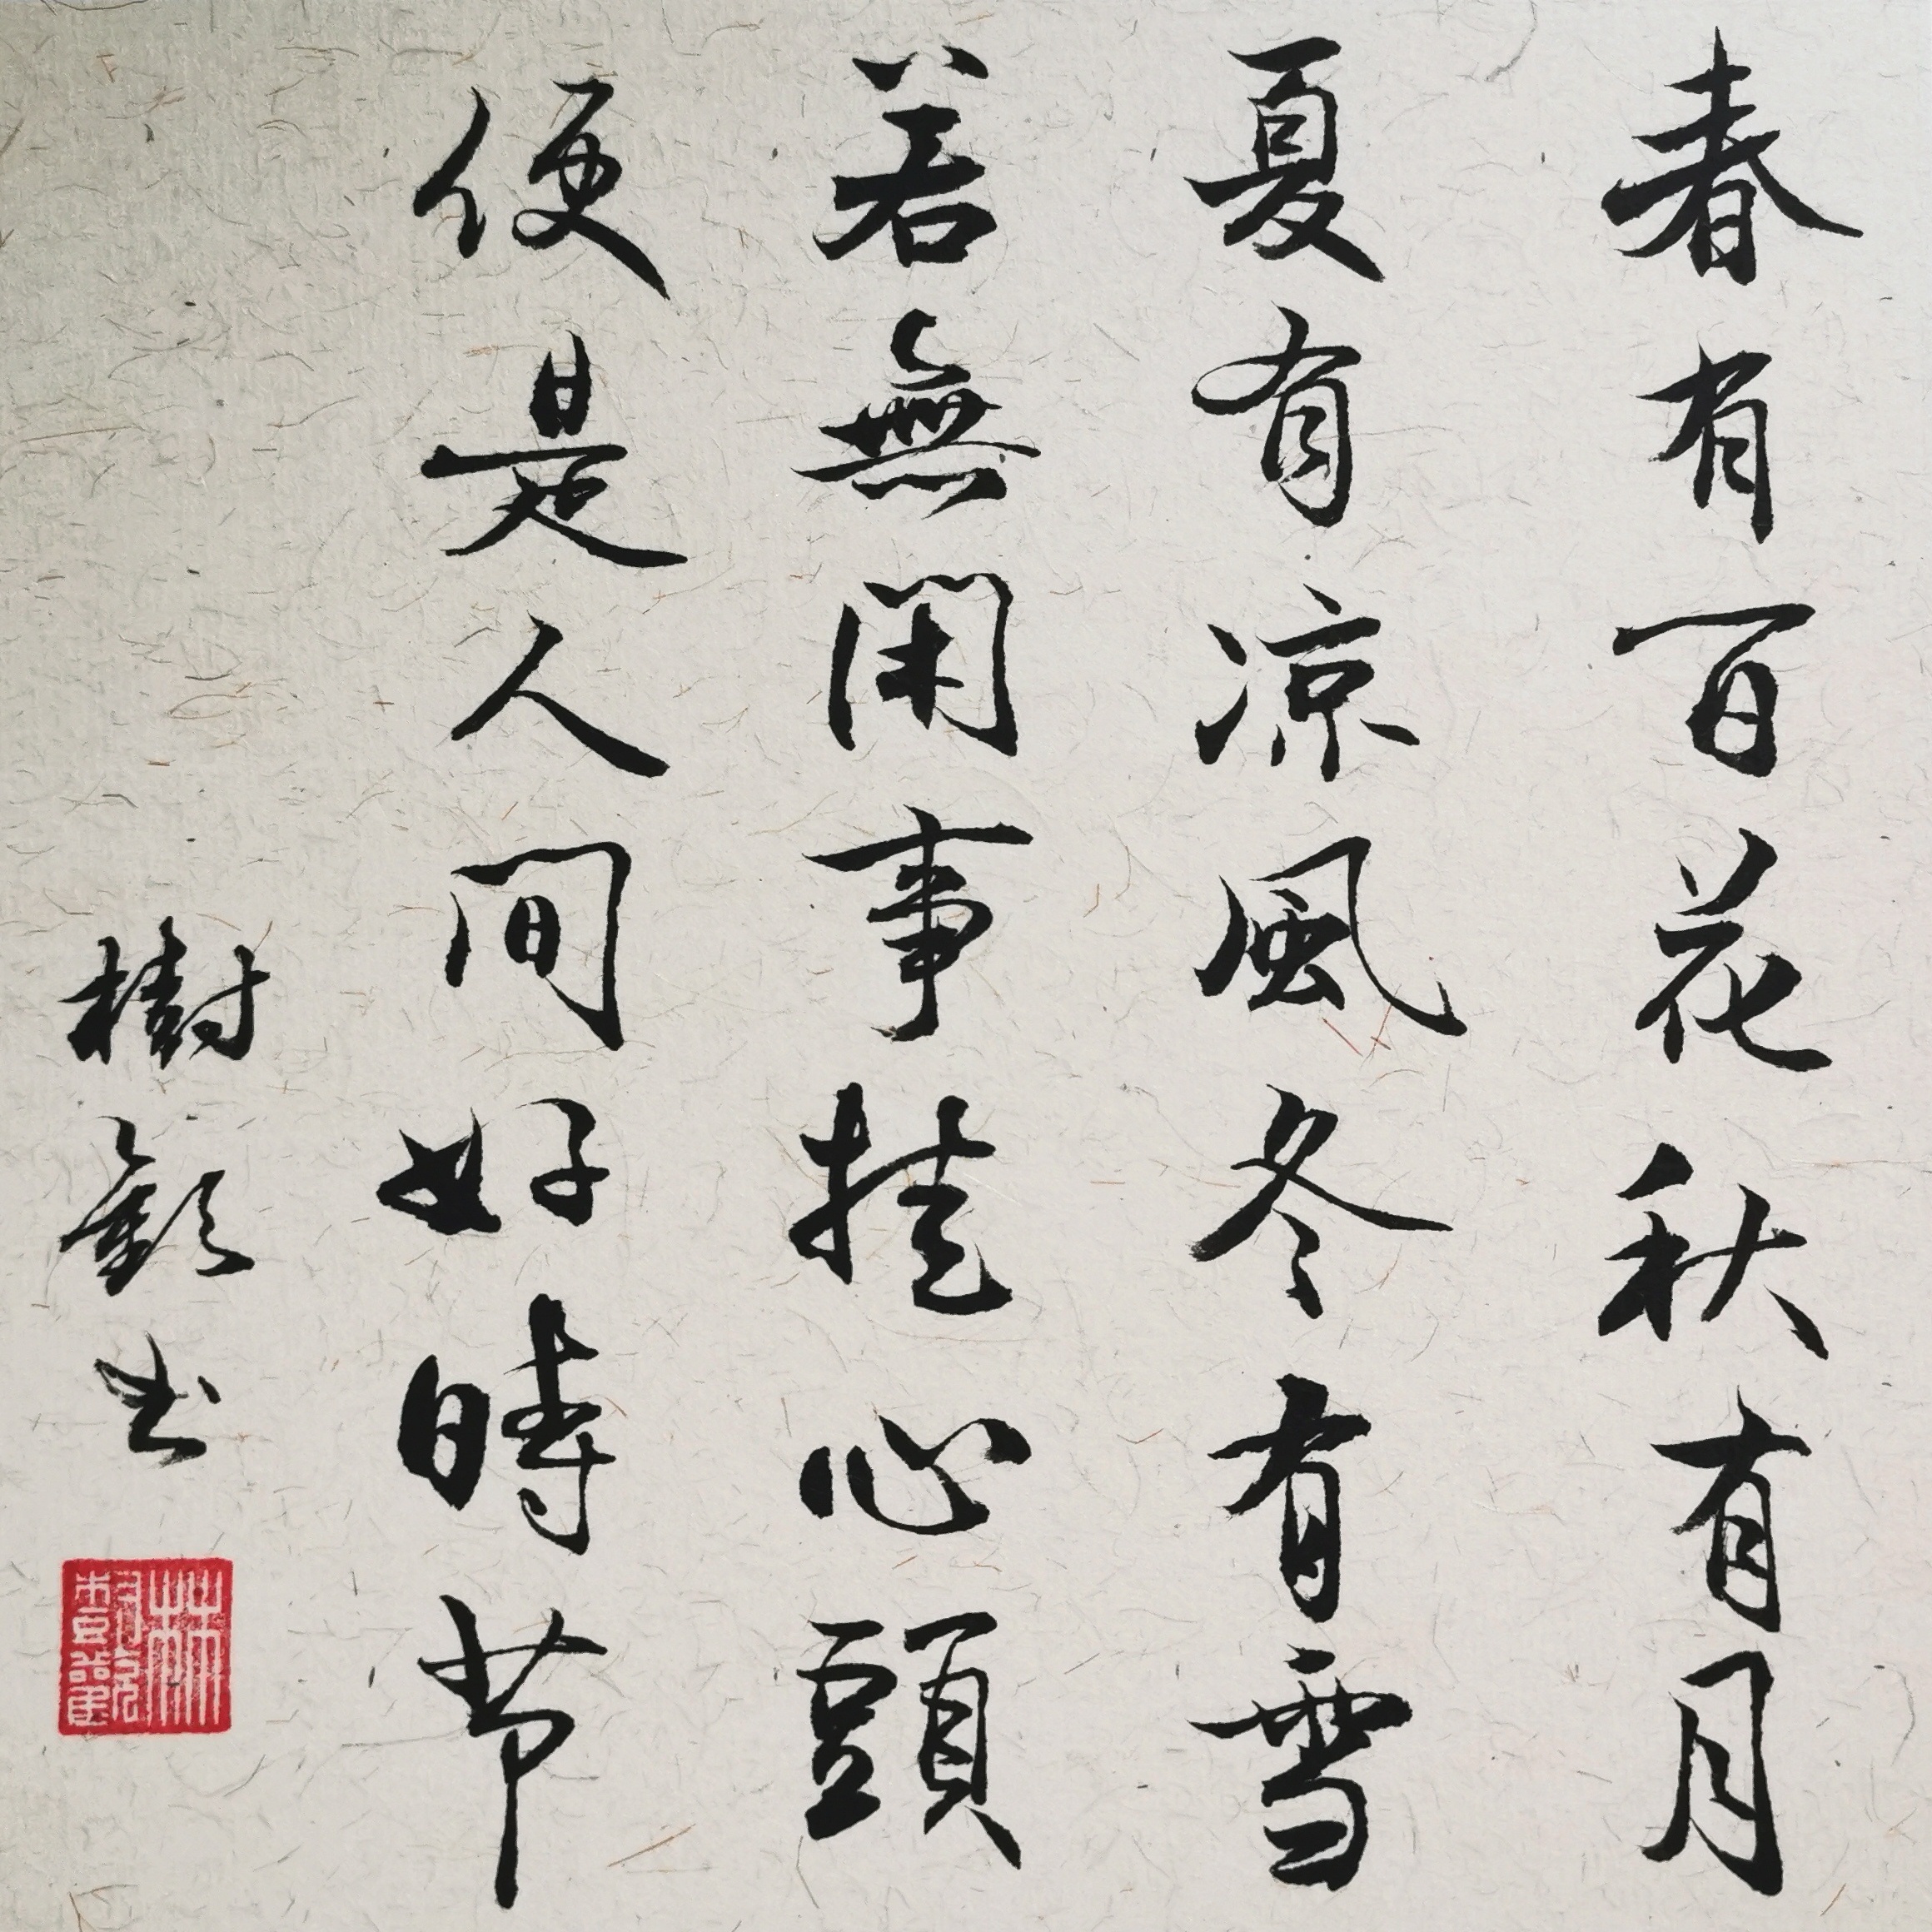 春有百花秋有月
夏有凉風冬有雪
若無閑事挂心頭
便是人间好時节
樹勳书